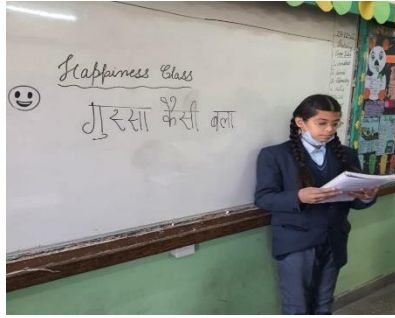 Happiness Class
गुस्सा कैसी बला